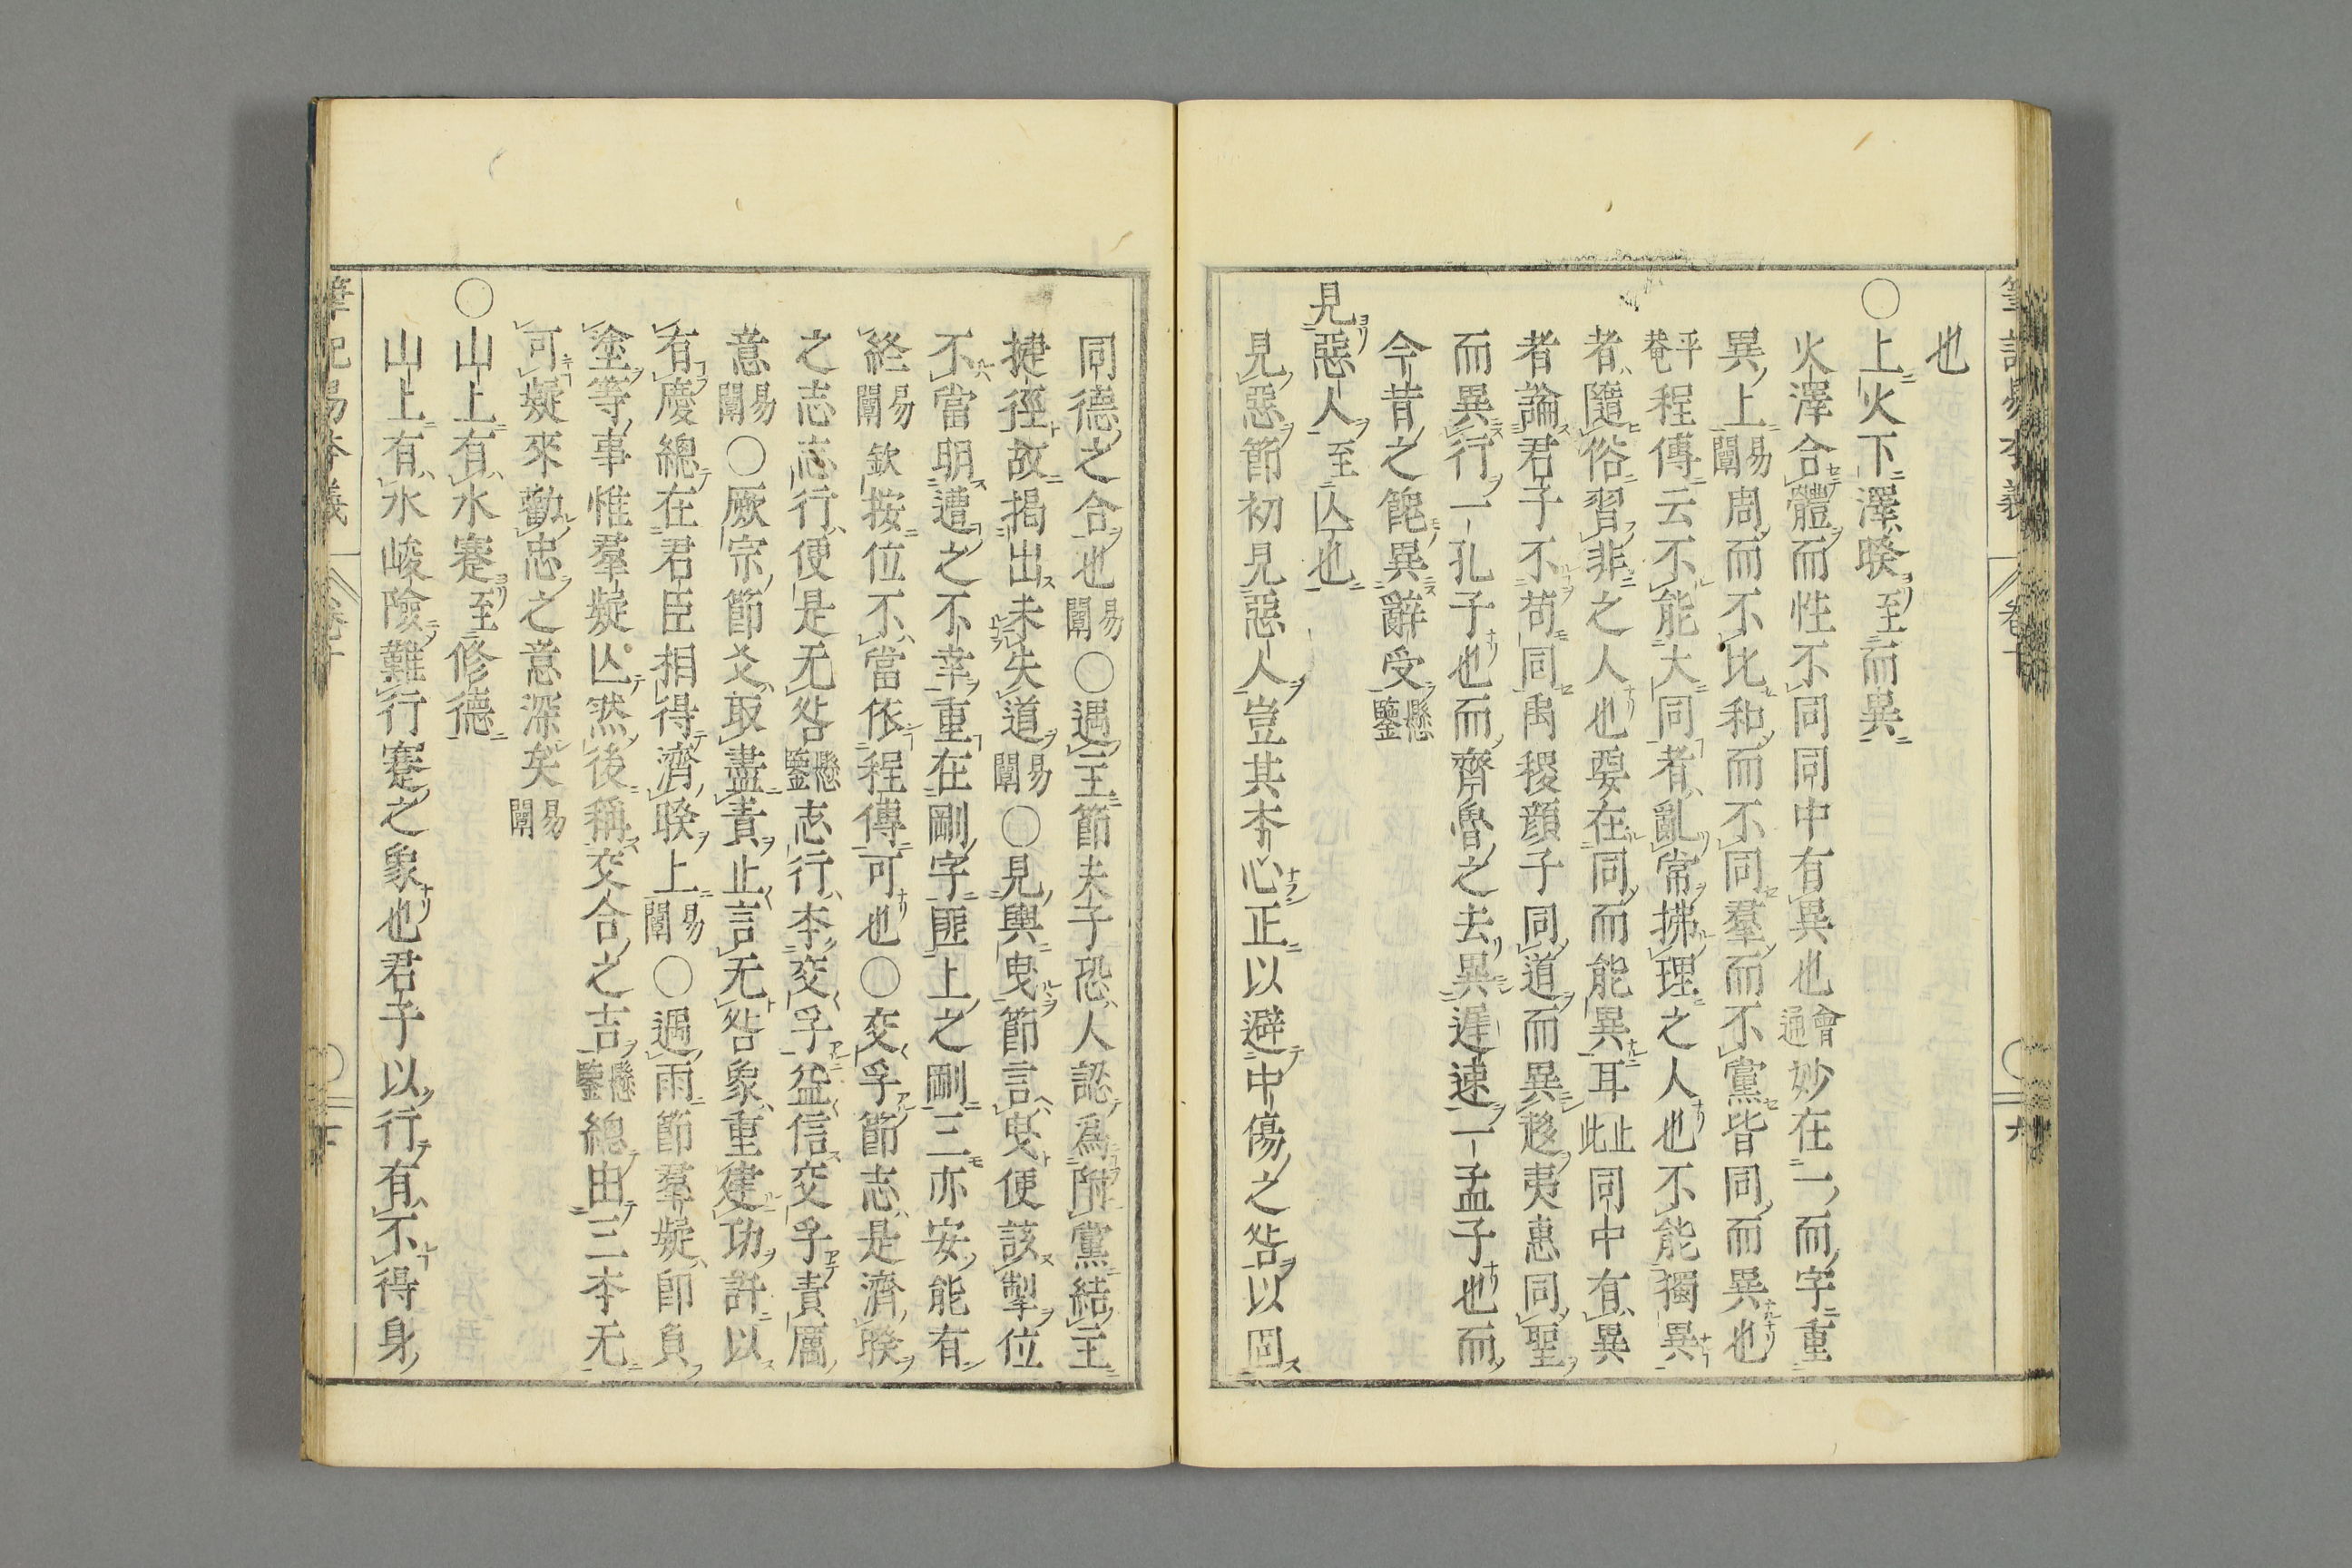 也
○上火下澤睽至而異
火澤合體而性不同同中有異也會通妙在一而字重
異上易闡周而不比和而不同羣而不黨皆同而異也
平菴程傳云不能大同者亂常拂理之人也不能獨異
者隨俗習非之人也要在同而能異耳止此同中有異
者論君子不苟同禹稷顔子同道而異趍夷惠同聖
而異行一孔子也而齊魯之去異遲速一孟子也而
今昔之餽異辭受懸鑒
見惡人至亾也
見惡節初見惡人豈其本心正以避中傷之咎以圄
同德之合也易闡○遇主節夫子恐人認爲附黨結主
捷徑故揭出未失道易闡○見輿曳節言曳便該掣位
不當明遭之不幸重在剛字匪上之剛三亦安能有
終易闡欽按位不當依程傳可也○交孚節志是濟睽
之志志行便是无咎懸鑒志行本交孚益信交孚責厲
意易闡○厥宗節爻取盡責止言无咎象重建功許以
有慶總在君臣相得濟睽上易闡○遇雨節羣疑卽負
塗等事惟羣疑亾然後稱交合之吉懸鑒總由三本无
可疑來勸忠之意深矣易闡
○山上有水蹇至修德
山上有水峻險難行蹇之象也君子以行有不得身